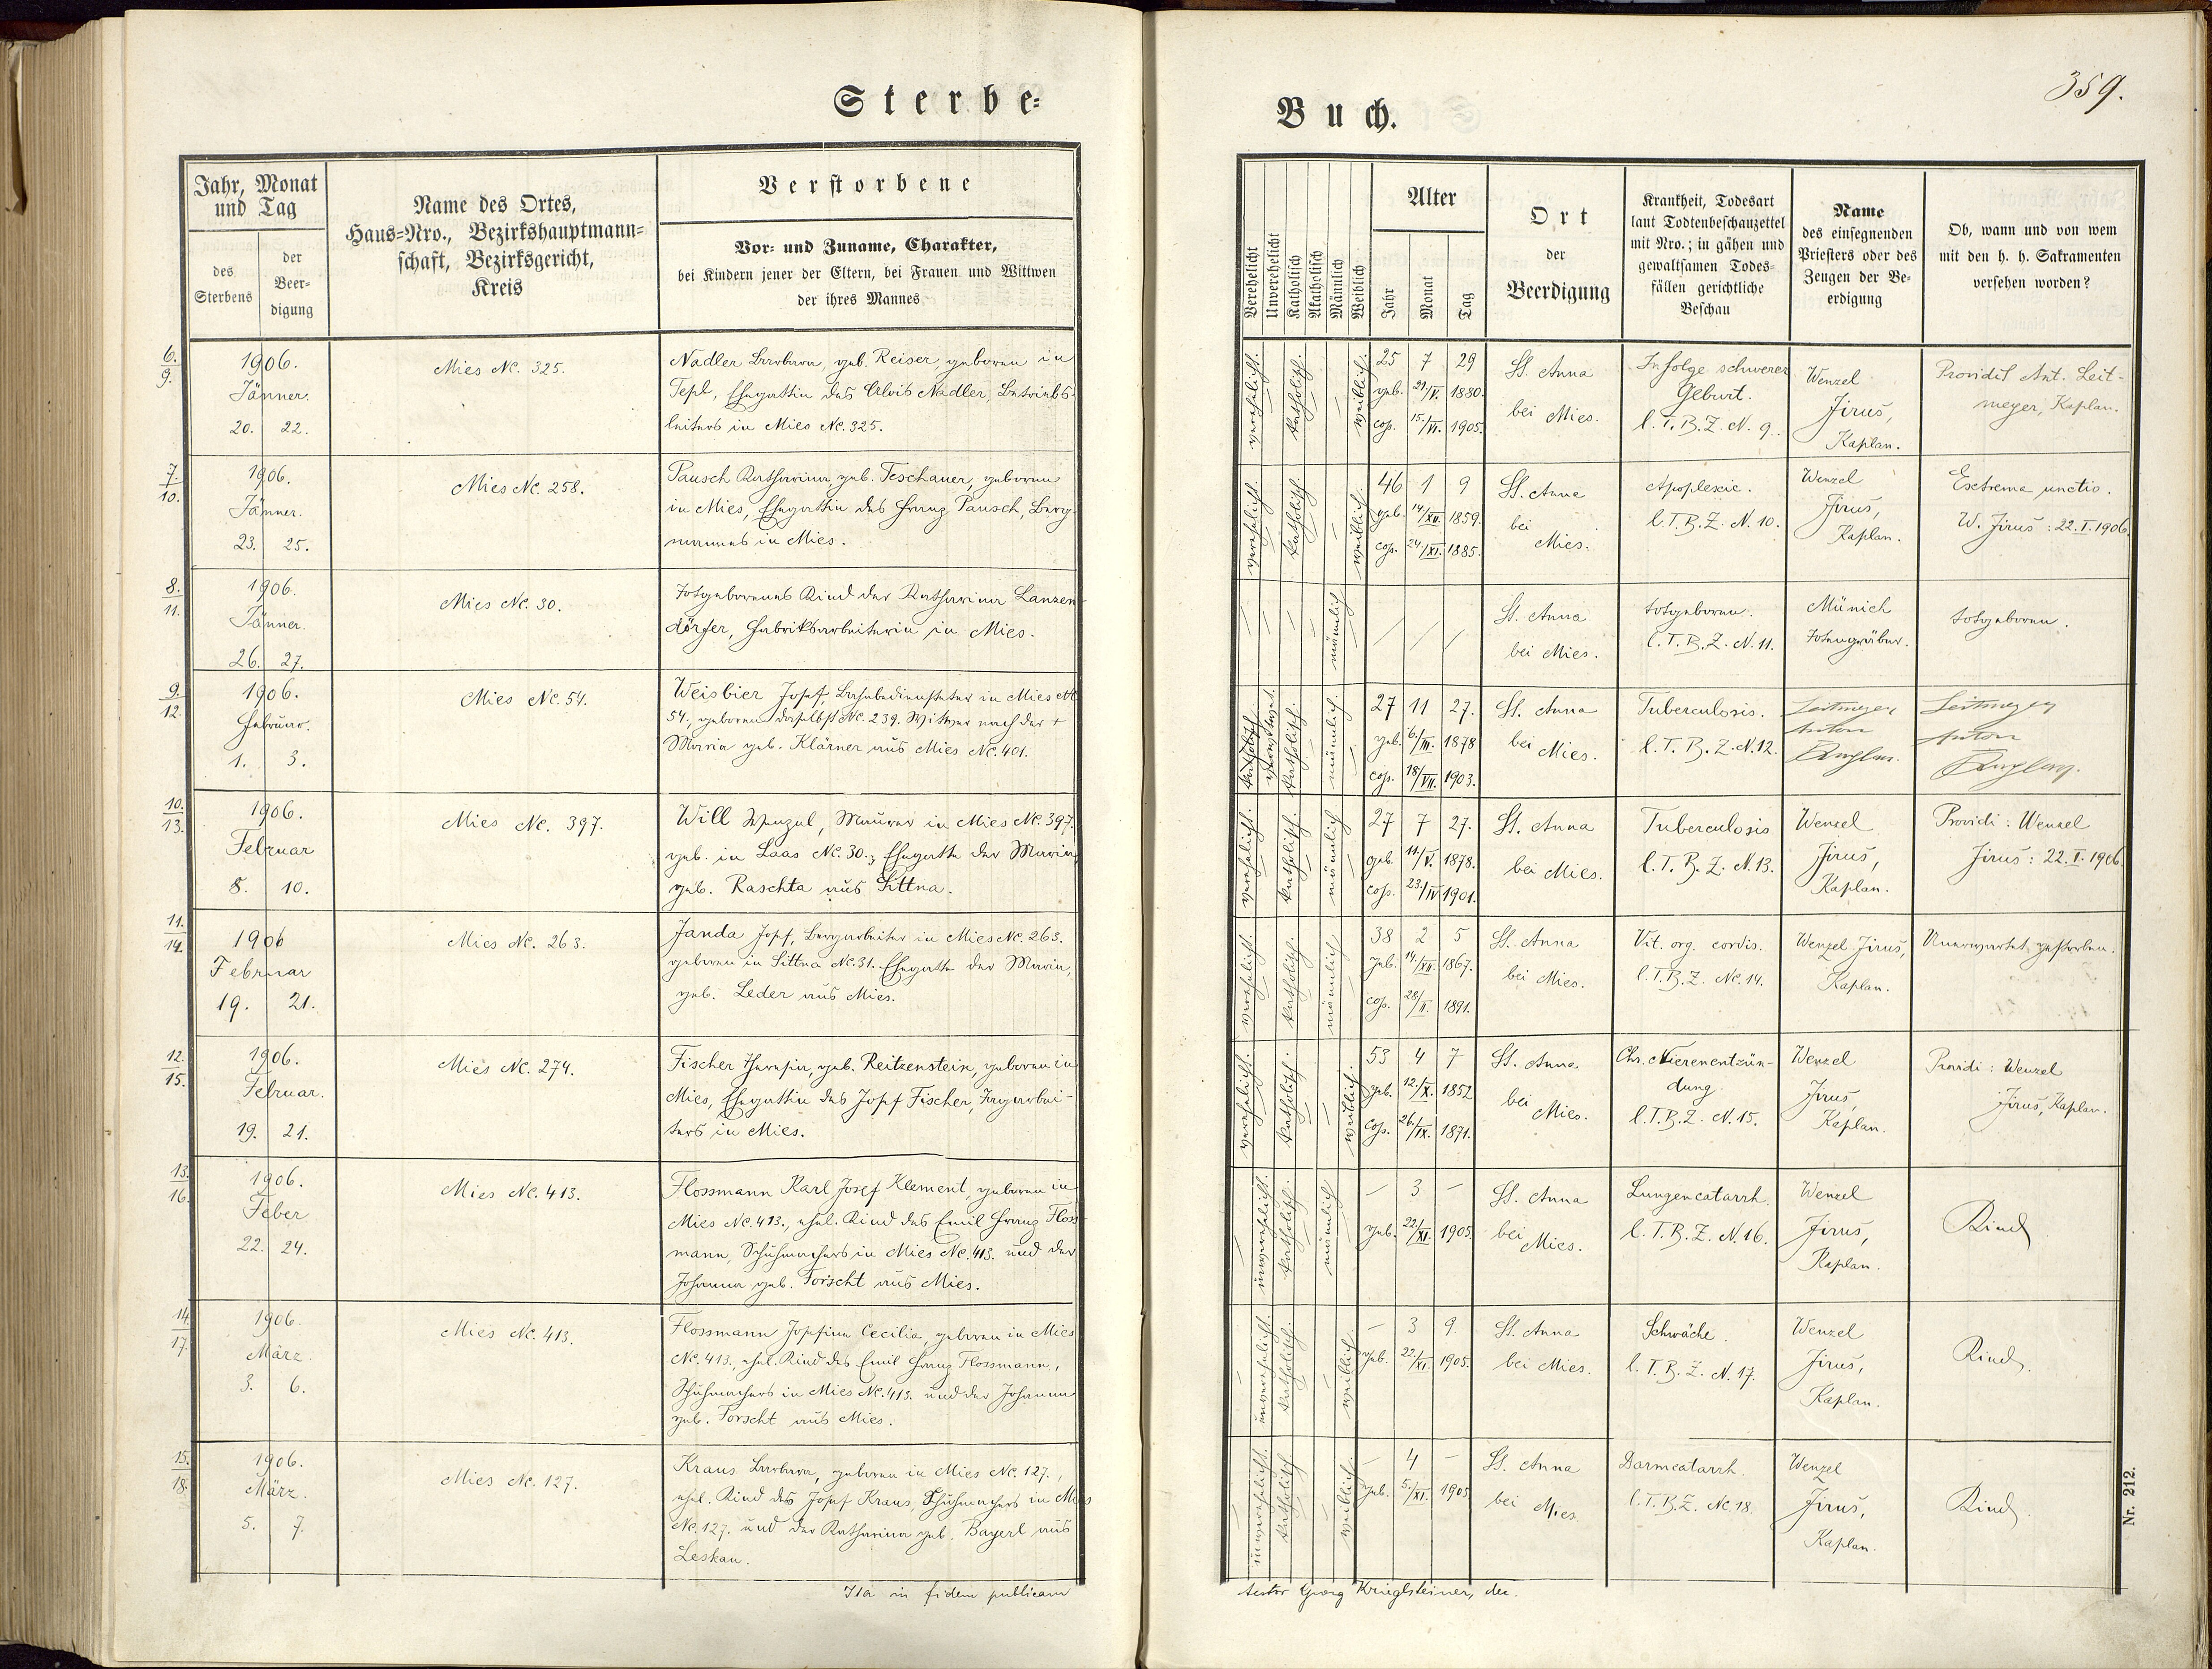 Sterbe=
Jahr, Monat
und Tag
des
Sterbens
der
Beer=
digung
Name des Ortes,
Haus=Nro., Bezirkshauptmann=
schaft, Bezirksgericht,
Kreis
Verstorbene
Vor= und Zuname, Charakter,
bei Kindern jener der Eltern, bei Frauen und Wittwen
der ihres Mannes
6.
9.
1906.
Jänner.
20. 22.
Mies Nc. 325.
Nadler Barbara, geb. Reiser, geboren in
Tepl, Ehegattin des Alois Nadler, Betriebs-
leiters in Mies Nc. 325.
7.
10.
1906.
Jänner.
23. 25.
Mies Nc. 258.
Pausch Katharina geb. Teschauer, geboren
in Mies, Ehegattin des Franz Pausch, Berg-
mannes in Mies.
8.
11.
1906.
Jänner.
26. 27.
Mies Nc. 30.
Totgeborenes Kind der Katharina Lanzen-
dörfer, Fabriksarbeiterin in Mies.
9.
12.
1906.
Februar.
1. 3.
Mies Nc. 54.
Weisbier Josef, Bahnbediensteter in Mies Nc
54. geboren daselbst Nc. 239. Witwer nach der +
Maria geb. Klärner aus Mies Nc. 401.
10.
13.
1906.
Februar
8. 10.
Mies Nc. 397.
Will Wenzel, Maurer in Mies Nc. 397.
geb. in Laas Nc. 30., Ehegatte der Maria
geb. Raschta aus Sittna.
11.
14.
1906
Februar
19. 21.
Mies Nc. 263.
Janda Josef, Bergarbeiter in Mies Nc. 263.
geboren in Sittna Nc. 31. Ehegatte der Maria,
geb. Leder aus Mies.
12.
15.
1906.
Februar.
19. 21.
Mies Nc. 274.
Fischer Theresia, geb. Reitzenstein, geboren in
Mies, Ehegattin des Josef Fischer, Tagarbei-
ters in Mies.
13.
16.
1906.
Feber
22. 24.
Mies Nc. 413.
Flossmann Karl Josef Klement, geboren in
Mies Nc. 413., ehel. Kind des Emil Franz Floss-
mann, Schuhmachers in Mies Nc. 413. und der
Johanna geb. Torscht aus Mies.
14
17.
1906.
März.
3. 6.
Mies Nc. 413.
Flossmann Josefina Cecilia, geboren in Mies
Nc. 413., ehel. Kind des Emil Franz Flossmann,
Schuhmachers in Mies Nc. 413. und der Johanna
geb. Torscht aus Mies.
15.
18.
1906.
März.
5. 7.
Mies Nc. 127.
Kraus Barbara, geboren in Mies Nc. 127.,
ehel. Kind des Josef Kraus, Schuhmachers in Mies
Nc. 127. und der Katharina geb. Bayerl aus
Leskau.
Ita in fidem publicam
Buch.
359.
Verehelicht
Unverehelicht
Katholisch
Akatholisch
Männlich
Weiblich
Alter
Jahr
Monat
Tag
Ort
der
Beerdigung
Krankheit, Todesart
laut Todtenbeschauzettel
mit Nro.; in gähen und
gewaltsamen Todes=
fällen gerichtliche
Beschau
Name
des einsegnenden
Priesters oder des
Zeugen der Be=
erdigung
Ob, wann und von wem
mit den h. h. Sakramenten
versehen worden?
verehelicht.
katholisch.
weiblich.
25 7 29
geb. 21/V. 1880.
cop. 15./VI. 1905.
St. Anna
bei Mies.
In folge schwerer
Geburt.
l. T. B. Z. N. 9.
Wenzel
Jirus,
Kaplan.
Providit Ant. Leit-
meyer, Kaplan.
verehelicht.
katholisch.
weiblich.
46 1 9
geb. 14/XII. 1859.
cop. 24/XI. 1885.
St. Anna
bei
Mies.
Apoplexie.
l. T. B. Z. N. 10.
Wenzel
Jirus,
Kaplan.
Extrema unctio.
W. Jirus: 22. I. 1906.
männlich
St. Anna
bei Mies.
totgeboren.
l. T. B. Z. N. 11.
Münich
Totengräber.
totgeboren.
katholisch
verwitwet.
katholisch.
männlich.
27 11 27.
geb. 6./III. 1878
cop. 18/VII. 1903.
St. Anna
bei Mies.
Tuberculosis.
l. T. B. Z. N. 12.
Leitmeyer
Anton
Kaplan.
Leitmeyer
Anton
Kaplan.
verehelicht.
katholisch.
männlich
27 7 27.
geb. 11./V. 1878.
cop. 23./IV 1901.
St. Anna
bei Mies.
Tuberculosis
l. T. B. Z. N. 13.
Wenzel
Jirus,
Kaplan.
Providi: Wenzel
Jirus: 22. I. 1906.
verehelicht.
katholisch.
männlich
38 2 5
geb. 14./XII. 1867.
cop. 28/II. 1891.
St. Anna
bei Mies.
Vit. org. cordis.
l. T. B. Z. Nc. 14.
Wenzel Jirus,
Kaplan.
Unerwartet gestorben.
verehelicht.
katholisch.
weiblich.
53 4 7
geb. 12./X. 1852
cop. 26./IX. 1871.
St. Anna
bei
Mies.
Chr. Nierenentzün-
dung.
l. T. B. Z. N. 15.
Wenzel
Jirus,
Kaplan.
Providi: Wenzel
Jirus, Kaplan.
unverehelicht.
katholisch.
männlich
— 3 —
geb. 22./XI. 1905.
St. Anna
bei
Mies.
Lungencatarrh.
l. T. B. Z. N. 16.
Wenzel
Jirus,
Kaplan.
Kind
unverehelicht.
katholisch.
weiblich.
— 3 9
geb. 22./XI. 1905.
St. Anna
bei Mies.
Schwäche.
l. T. B. Z. N. 17.
Wenzel
Jirus,
Kaplan.
Kind.
unverehelicht.
katholisch
weiblich.
— 4 —
geb. 5./XI. 1905
St. Anna
bei
Mies.
Darmcatarrh.
l. T. B. Z. Nc. 18.
Wenzel
Jirus,
Kaplan.
Kind.
Nr. 212.
testor Georg Krieglsteiner, dec.